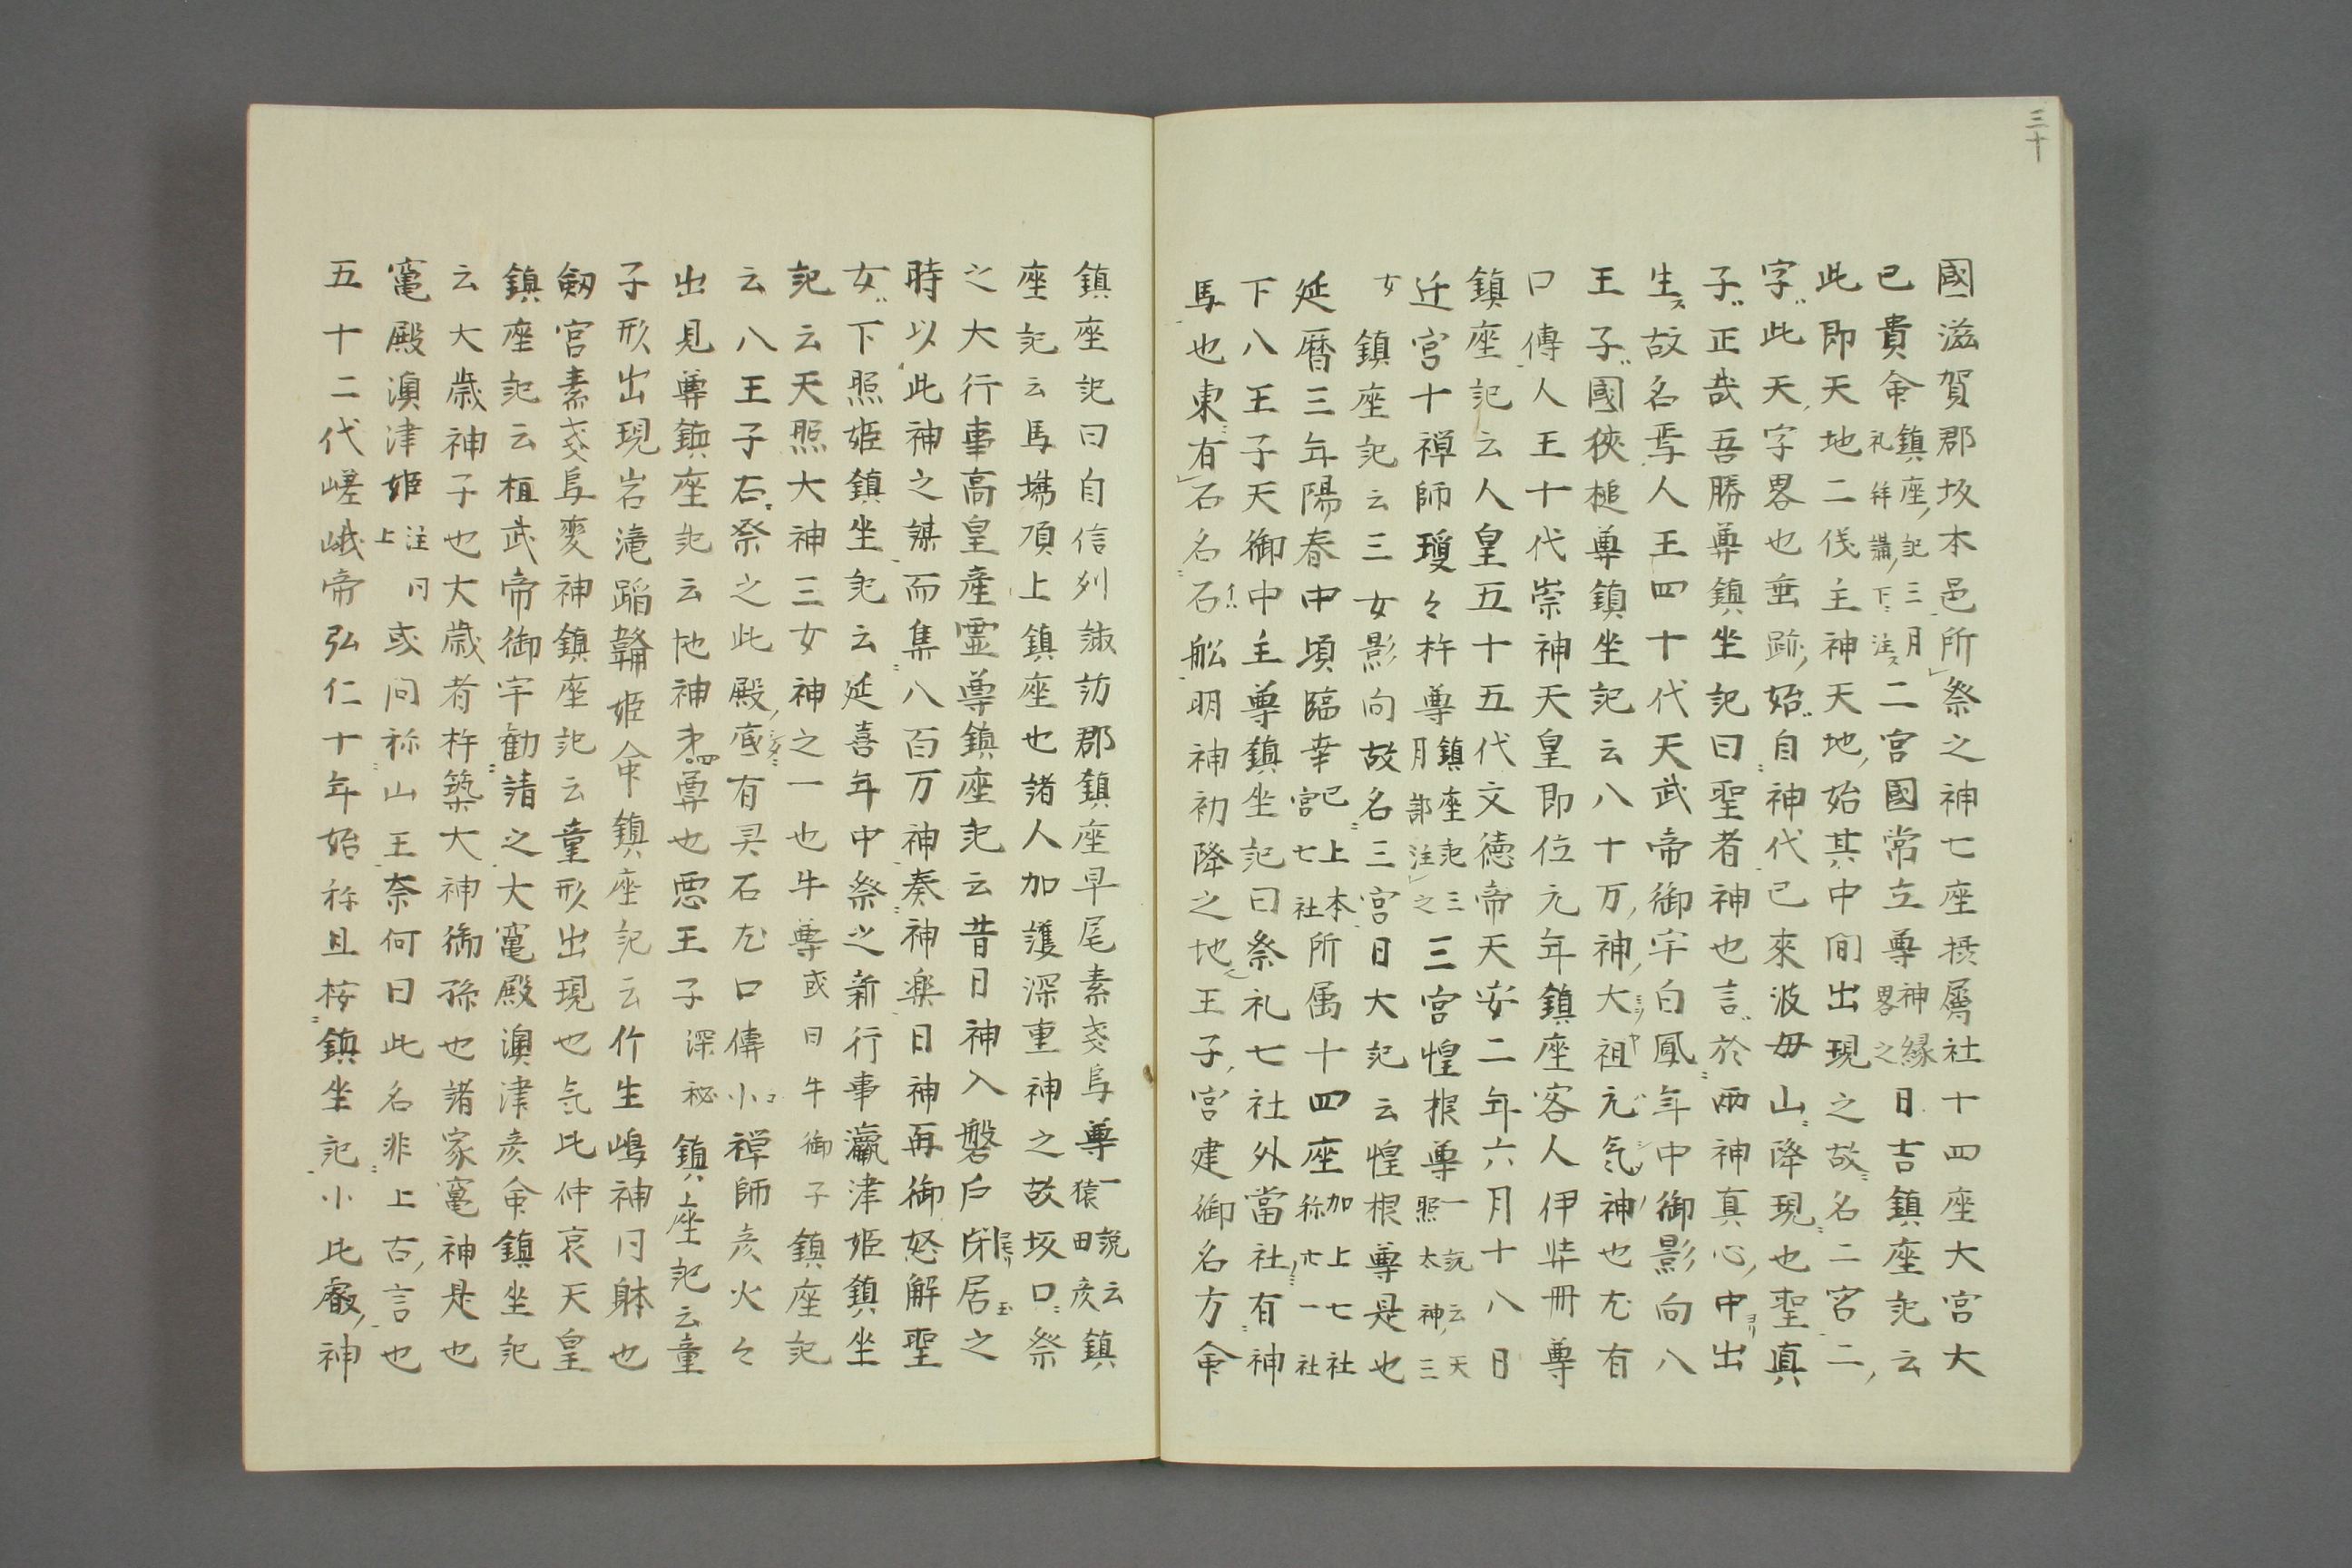 三十
國滋賀郡坂本邑所祭之神七座摂属社十四座大宮大
已貴命鎮座記三月礼拜講下注二宮國常立尊神縁畧之日吉鎮座記云
此即天地二伐主神天地始其中間出現之故名二宮二
字此天字畧也垂跡始自神代已來波毋山降現也聖真
子正哉吾勝尊鎮坐記曰聖者神也言於兩神真心中出
生故名焉人王四十代天武帝御宇白鳳年中御影向八
王子國狹槌尊鎮坐記云八十万神大祖元気神也尤有
口傳人王十代崇神天皇即位元年鎮座客人伊弉冊尊
鎮座記云人皇五十五代文徳帝天安二年六月十八日
迁宮十禅師瓊々杵尊鎮座記三月部注之三宮惶根尊一説云天照太神三
女鎮座記云三女影向故名三宮日大記云惶根尊是也
延暦三年陽春中頃臨幸已上本宮七社所属十四座加上七社称廿一社
下八王子天御中主尊鎮坐記曰祭礼七社外當社有神
馬也東有石名石舩明神初降之地王子宮建御名方命
鎮座記曰自信列諏訪郡鎮座早尾素戔烏尊一説云猿田彦鎮
座記云馬場頂上鎮座也諸人加護深重神之故坂口祭
之大行事高皇産霊尊鎮座記云昔日神入磐戸閉居之
時以此神之謀而集八百万神奏神楽日神再御怒解聖
女下照姫鎮坐記云延喜年中祭之新行事瀛津姫鎮坐
記云天照大神三女神之一也牛尊或曰牛御子鎮座記
云八王子石祭之此殿底有灵石尤口傳小禅師彦火々
出見尊鎮座記云地神第四尊也悪王子深秘鎮座記云童
子形出現岩滝蹈韛姫命鎮座記云竹生嶋神同躰也
劔宮素戔烏変神鎮座記云童形出現也気比仲哀天皇
鎮座記云桓武帝御宇勧請之大竃殿澳津彦命鎮坐記
云大歳神子也大歳者杵築大神御孫也諸家竃神是也
竃殿澳津姫注同上或問称山王奈何曰此名非上古言也
五十二代嵯峨帝弘仁十年始称且桉鎮坐記小比叡神